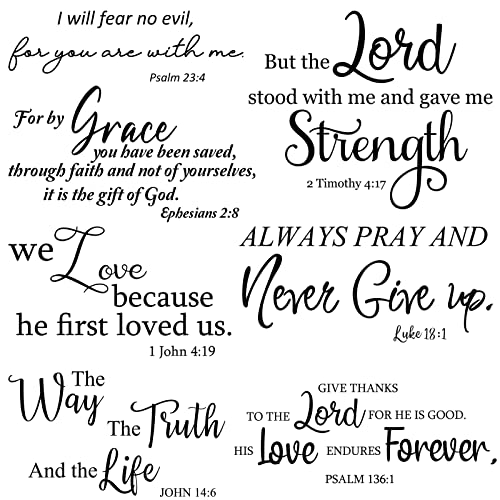 I will fear no evil,
for you are with me.
Psalm 23:4
But the Lord
stood with me and gave me
Strength
2 Timothy 4:17
For by Grace
you have been saved,
through faith and not of yourselves,
it is the gift of God.
Ephesians 2:8
ALWAYS PRAY AND
Never Give up.
Luke 18:1
we Love
because
he first loved us.
1 John 4:19
The
Way
The Truth
And the Life
JOHN 14:6
GIVE THANKS
TO THE Lord FOR HE IS GOOD.
HIS Love ENDURES Forever,
PSALM 136:1